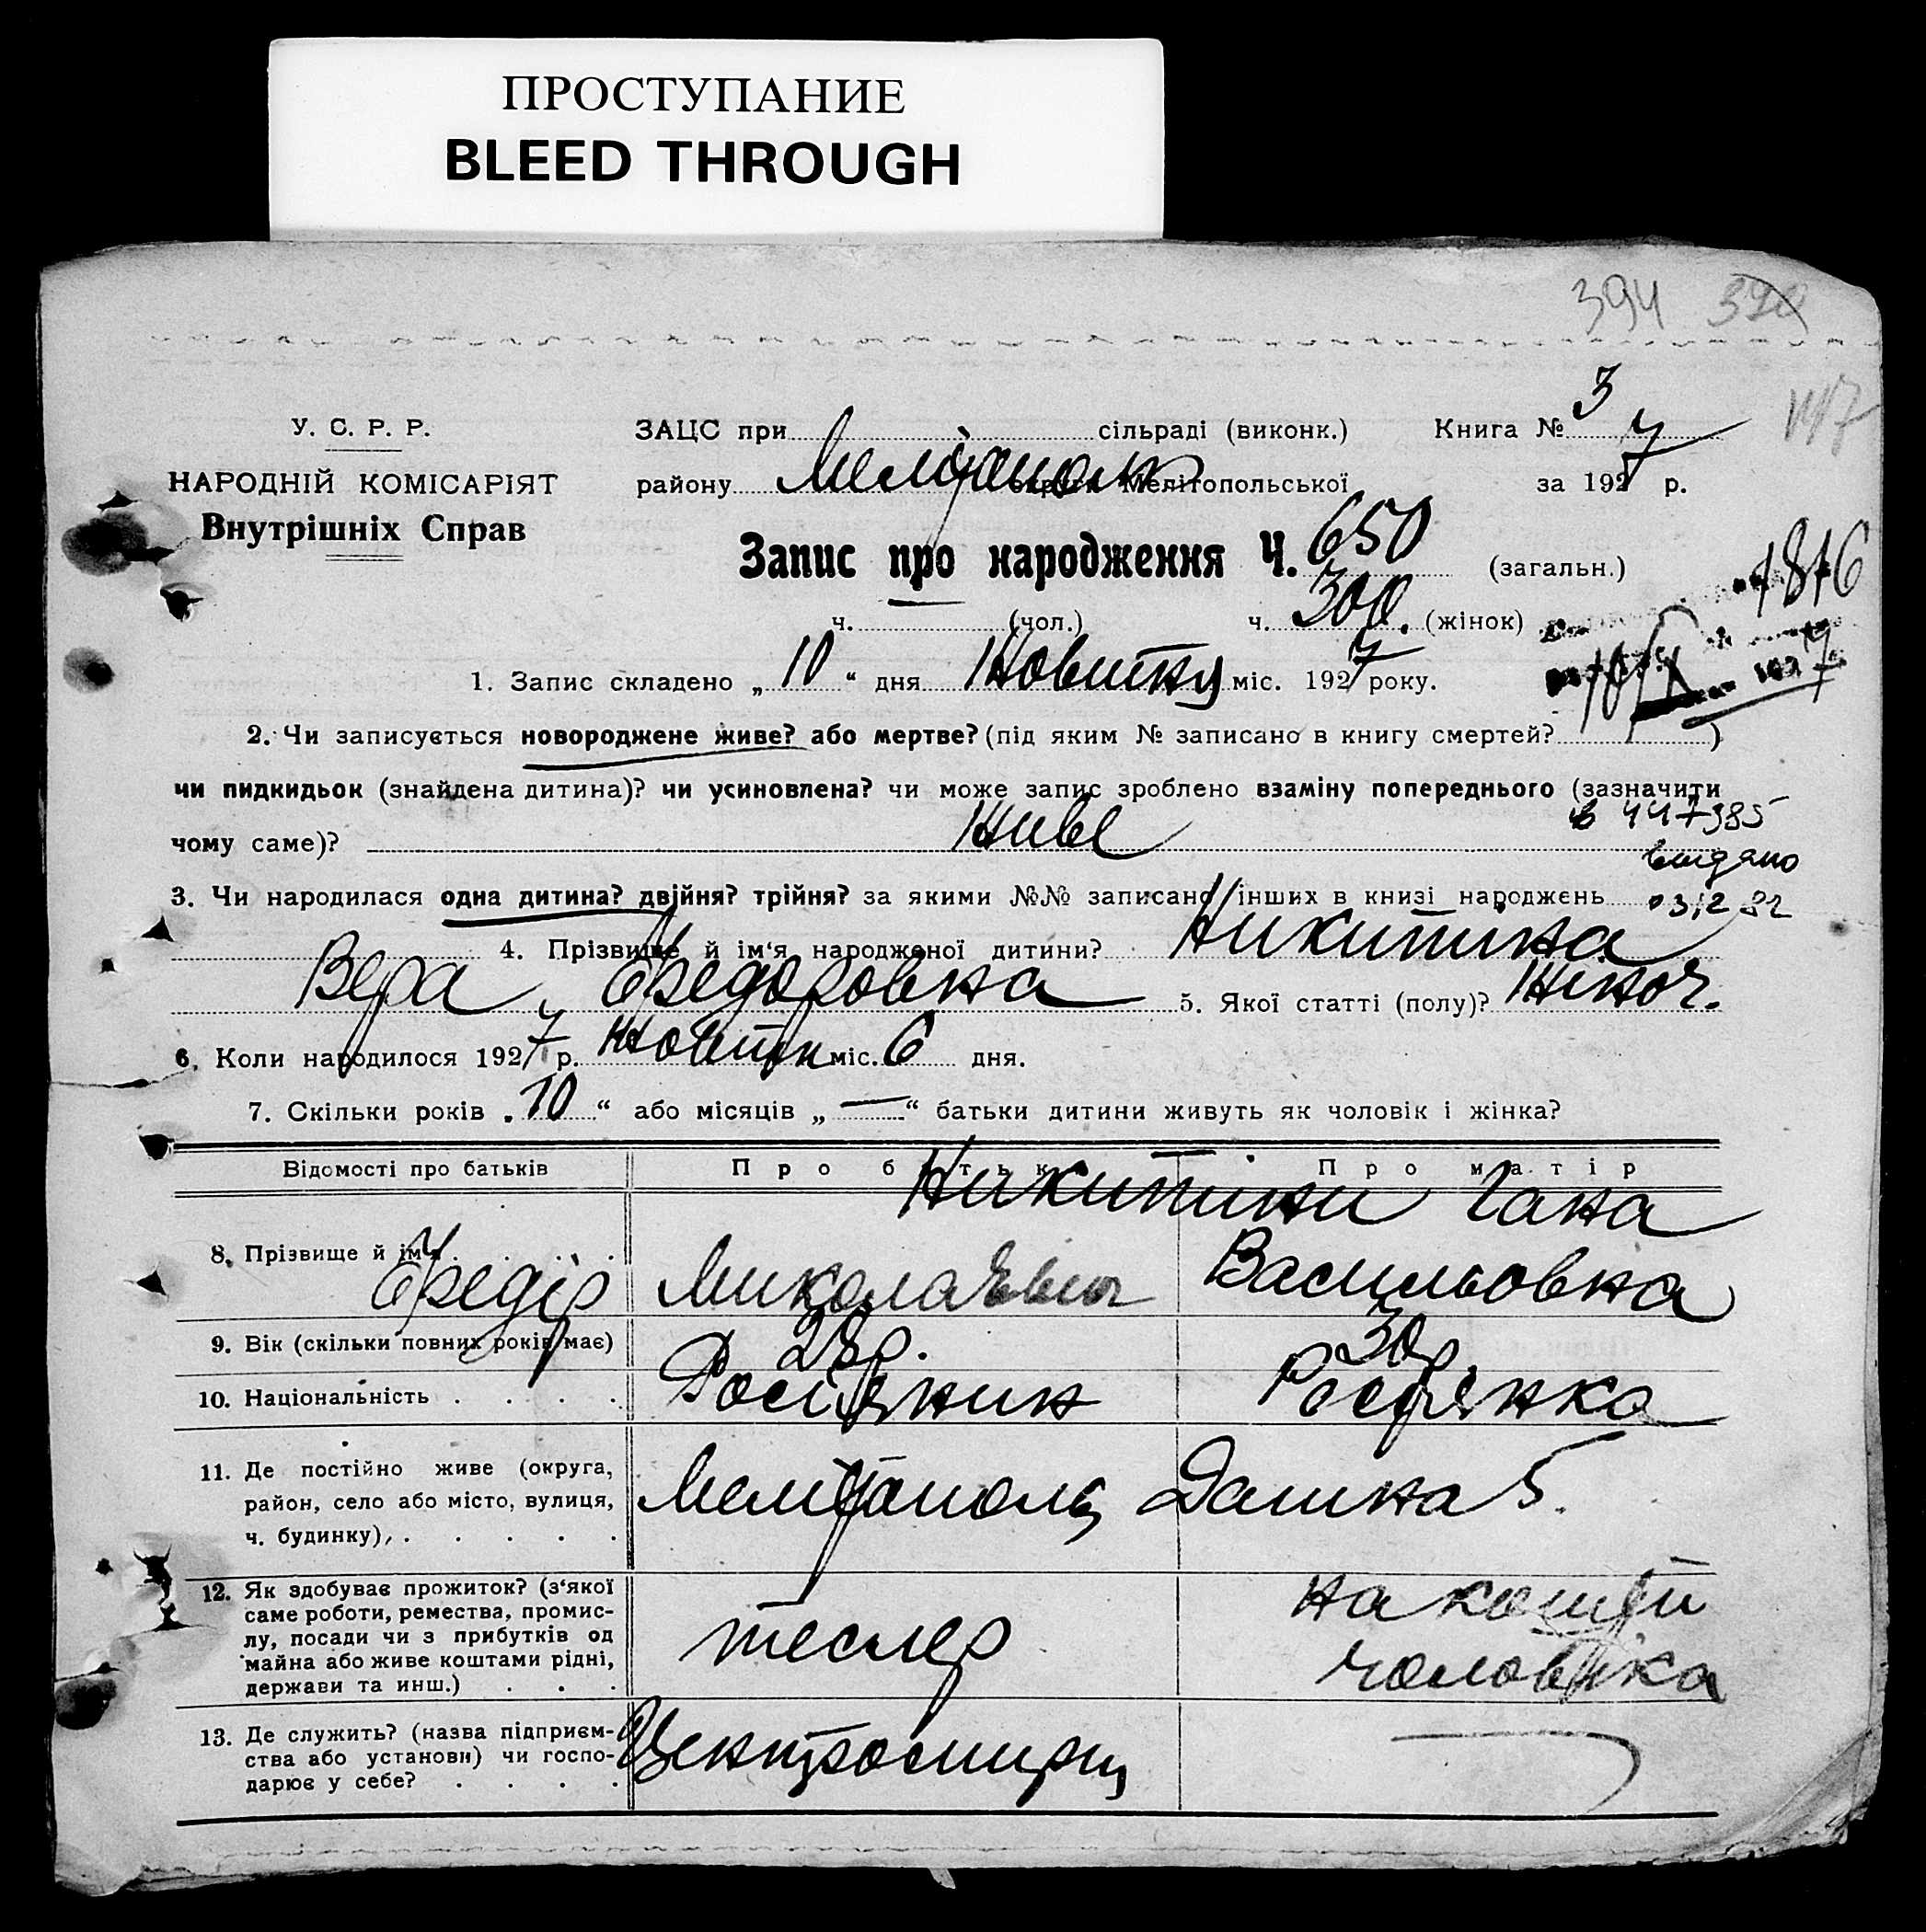 ПРОСТУПАНИЕ
BLEED THROUGH
394 390
У. С. Р. Р.
НАРОДНІЙ КОМІСАРІЯТ
Внутрішніх Справ
ЗАЦС при сільраді (виконк.) Книга № 3
147
району Мелітополь округи Мелітопольської за 1927 р.
Запис про народження Ч. 650 (загальн.)
1876
ч. (чол.) ч. 300. (жінок)
1. Запис складено „10“ дня Жовтня міс. 1927 року.
10/X 1927
2. Чи записується новороджене живе? або мертве? (під яким № записано в книгу смертей? )
чи пидкидьок (знайдена дитина)? чи усиновлена? чи може запис зроблено взаміну попереднього (зазначити
чому саме)? Живе
447385
видано
3. Чи народилася одна дитина? двійня? трійня? за якими №№ записано інших в книзі народжень
03.12 82
4. Прізвище й ім'я народженої дитини? Никитіна
Вера Федоровна 5. Якої статті (полу)? Жіноч.
6. Коли народилося 1927 р. Жовтня міс. 6 дня.
7. Скільки років „10“ або місяців „—“ батьки дитини живуть як чоловік і жінка?
Відомості про батьків Про батька Про матір
Никитіни Гана
8. Прізвище й ім'я . . . .
Федір Миколаєвич Васильовна
9. Вік (скільки повних років має) 28р. 30р.
10. Національність . . . . Росіянин Росіянка
11. Де постійно живе (округа,
район, село або місто, вулиця,
ч. будинку), . . . . .
Мелітополь 5.
12. Як здобуває прожиток? (з'якої
саме роботи, ремества, промис-
лу, посади чи з прибутків од
майна або живе коштами рідні,
держави та инш.) . . .
тесляр
на кошти
чоловіка
13. Де служить? (назва підприєм-
ства або установи) чи госпо-
дарює у себе? . . . .
Центроспирт